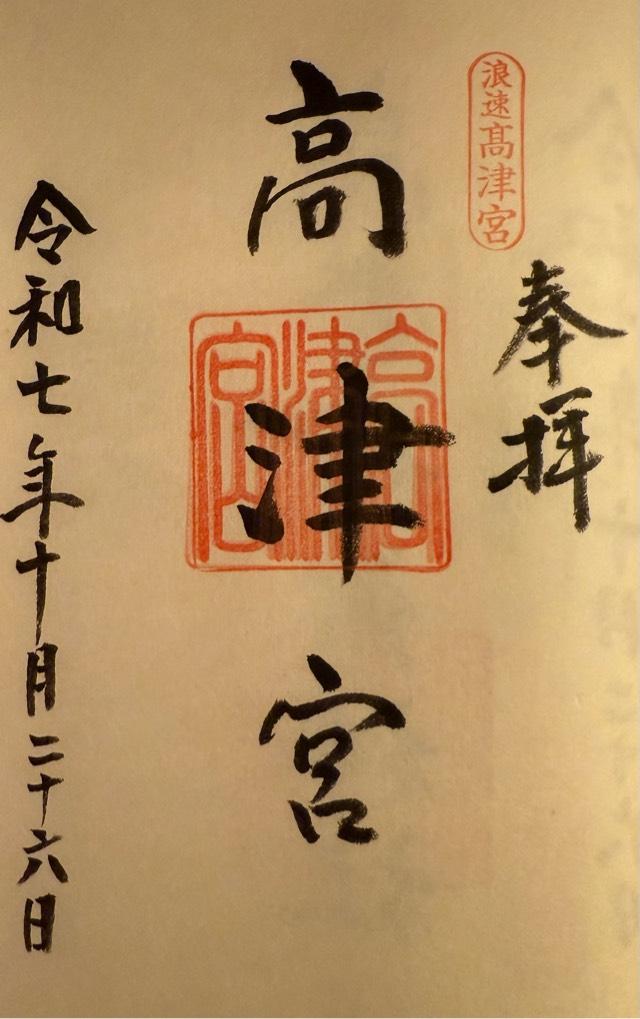 浪速髙津宮
奉拝
高津宮
高津宮
令和七年十月二十六日